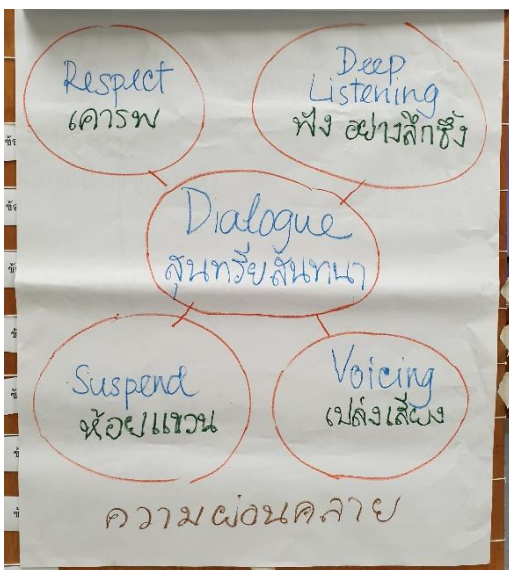 Respect
เคารพ
Deep
Listening
ฟัง อย่างลึกซึ้ง
Dialogue
สุนทรียสนทนา
Suspend
ห้อยแขวน
Voicing
เปล่งเสียง
ความผ่อนคลาย